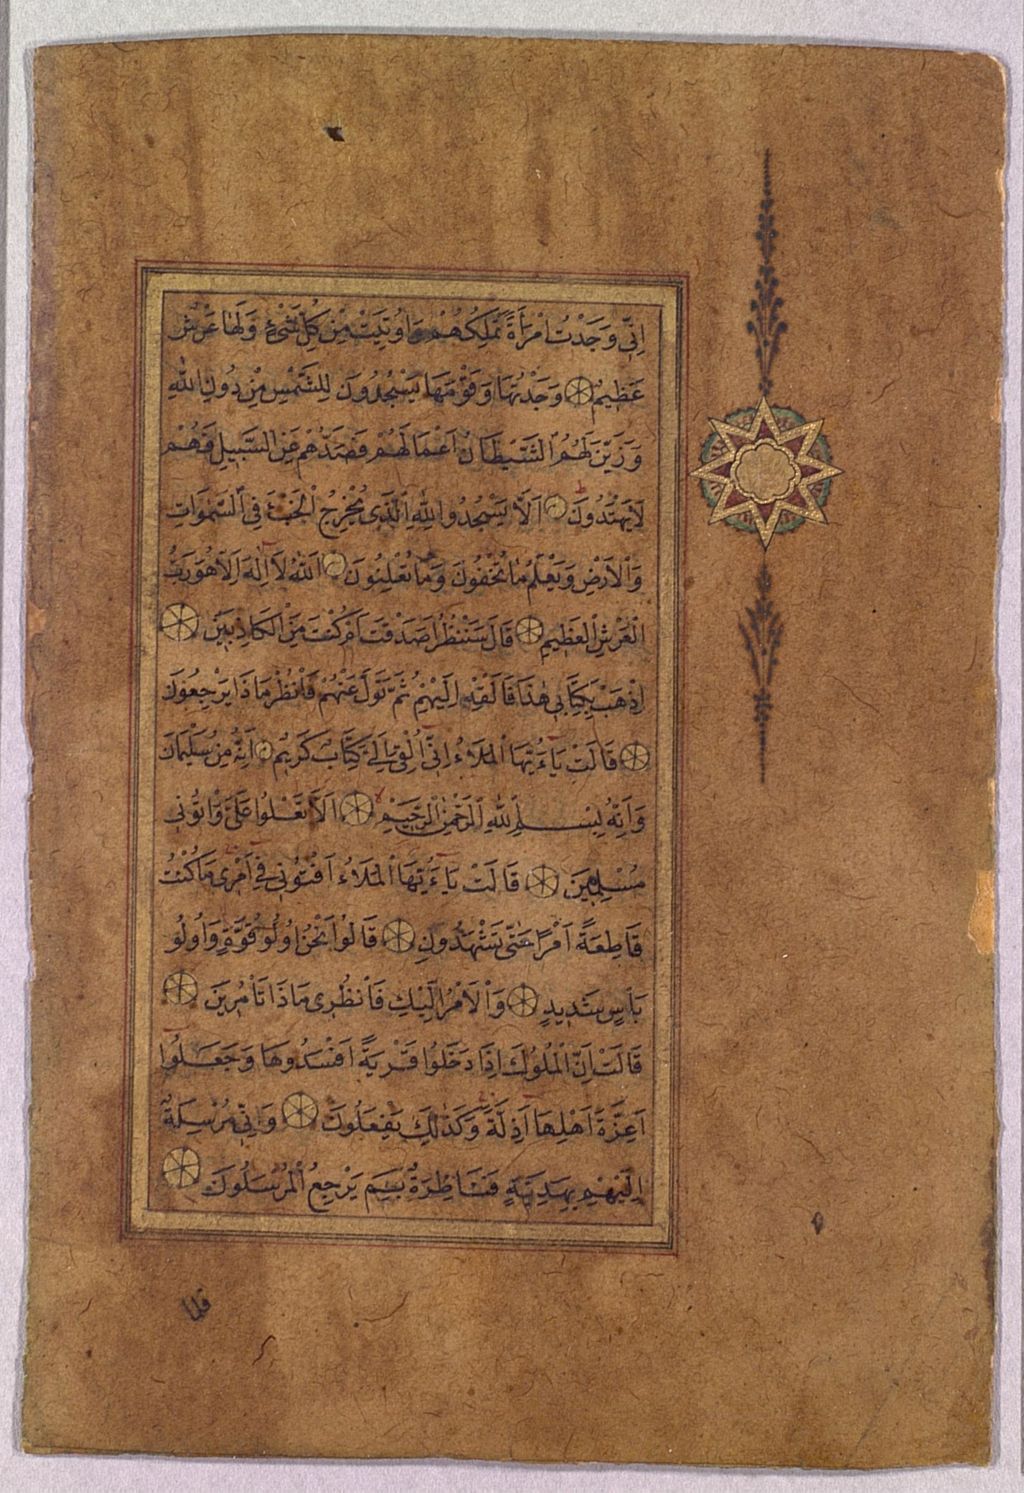 اِنّى وَجَدْتُ امْرَأَةً تَمْلِكُهُمْ وَاُوتِيَتْ مِنْ كُلِّ شَىْءٍ وَلَهَا عَرْشٌ
عَظيمٌ وَجَدْتُهَا وَقَوْمَهَا يَسْجُدُونَ لِلشَّمْسِ مِنْ دُونِ اللّٰهِ
وَزَيَّنَ لَهُمُ الشَّيْطَانُ اَعْمَالَهُمْ فَصَدَّهُمْ عَنِ السَّبيلِ فَهُمْ
لَا يَهْتَدُونَ اَلَّا يَسْجُدُوا لِلّٰهِ الَّذى يُخْرِجُ الْخَبْءَ فِى السَّمٰوَاتِ
وَالْاَرْضِ وَيَعْلَمُ مَا تُخْفُونَ وَمَا تُعْلِنُونَ اَللّٰهُ لَا اِلٰهَ اِلَّا هُوَ رَبُّ
الْعَرْشِ الْعَظيمِ قَالَ سَنَنْظُرُ اَصَدَقْتَ اَمْ كُنْتَ مِنَ الْكَاذِبينَ
اِذْهَبْ بِكِتَابى هٰذَا فَاَلْقِهْ اِلَيْهِمْ ثُمَّ تَوَلَّ عَنْهُمْ فَانْظُرْ مَاذَا يَرْجِعُونَ
قَالَتْ يَاءَيُّهَا الْمَلَاءُ اِنّى اُلْقِىَ اِلَىَّ كِتَابٌ كَريمٌ اِنَّهُ مِنْ سُلَيْمَانَ
وَاِنَّهُ بِسْمِ اللّٰهِ الرَّحْمٰنِ الرَّحيمِ اَلَّا تَعْلُوا عَلَىَّ وَاْتُونى
مُسْلِمينَ قَالَتْ يَاءَيُّهَا الْمَلَاءُ اَفْتُونى فى اَمْرى مَا كُنْتُ
قَاطِعَةً اَمْرًا حَتّٰى تَشْهَدُونِ قَالُوا نَحْنُ اُولُو قُوَّةٍ وَاُولُو
بَأْسٍ شَديدٍ وَالْاَمْرُ اِلَيْكِ فَانْظُرى مَاذَا تَأْمُرينَ
قَالَتْ اِنَّ الْمُلُوكَ اِذَا دَخَلُوا قَرْيَةً اَفْسَدُوهَا وَجَعَلُوا
اَعِزَّةَ اَهْلِهَا اَذِلَّةً وَكَذٰلِكَ يَفْعَلُونَ وَاِنّى مُرْسِلَةٌ
اِلَيْهِمْ بِهَدِيَّةٍ فَنَاظِرَةٌ بِمَ يَرْجِعُ الْمُرْسَلُونَ
فلما